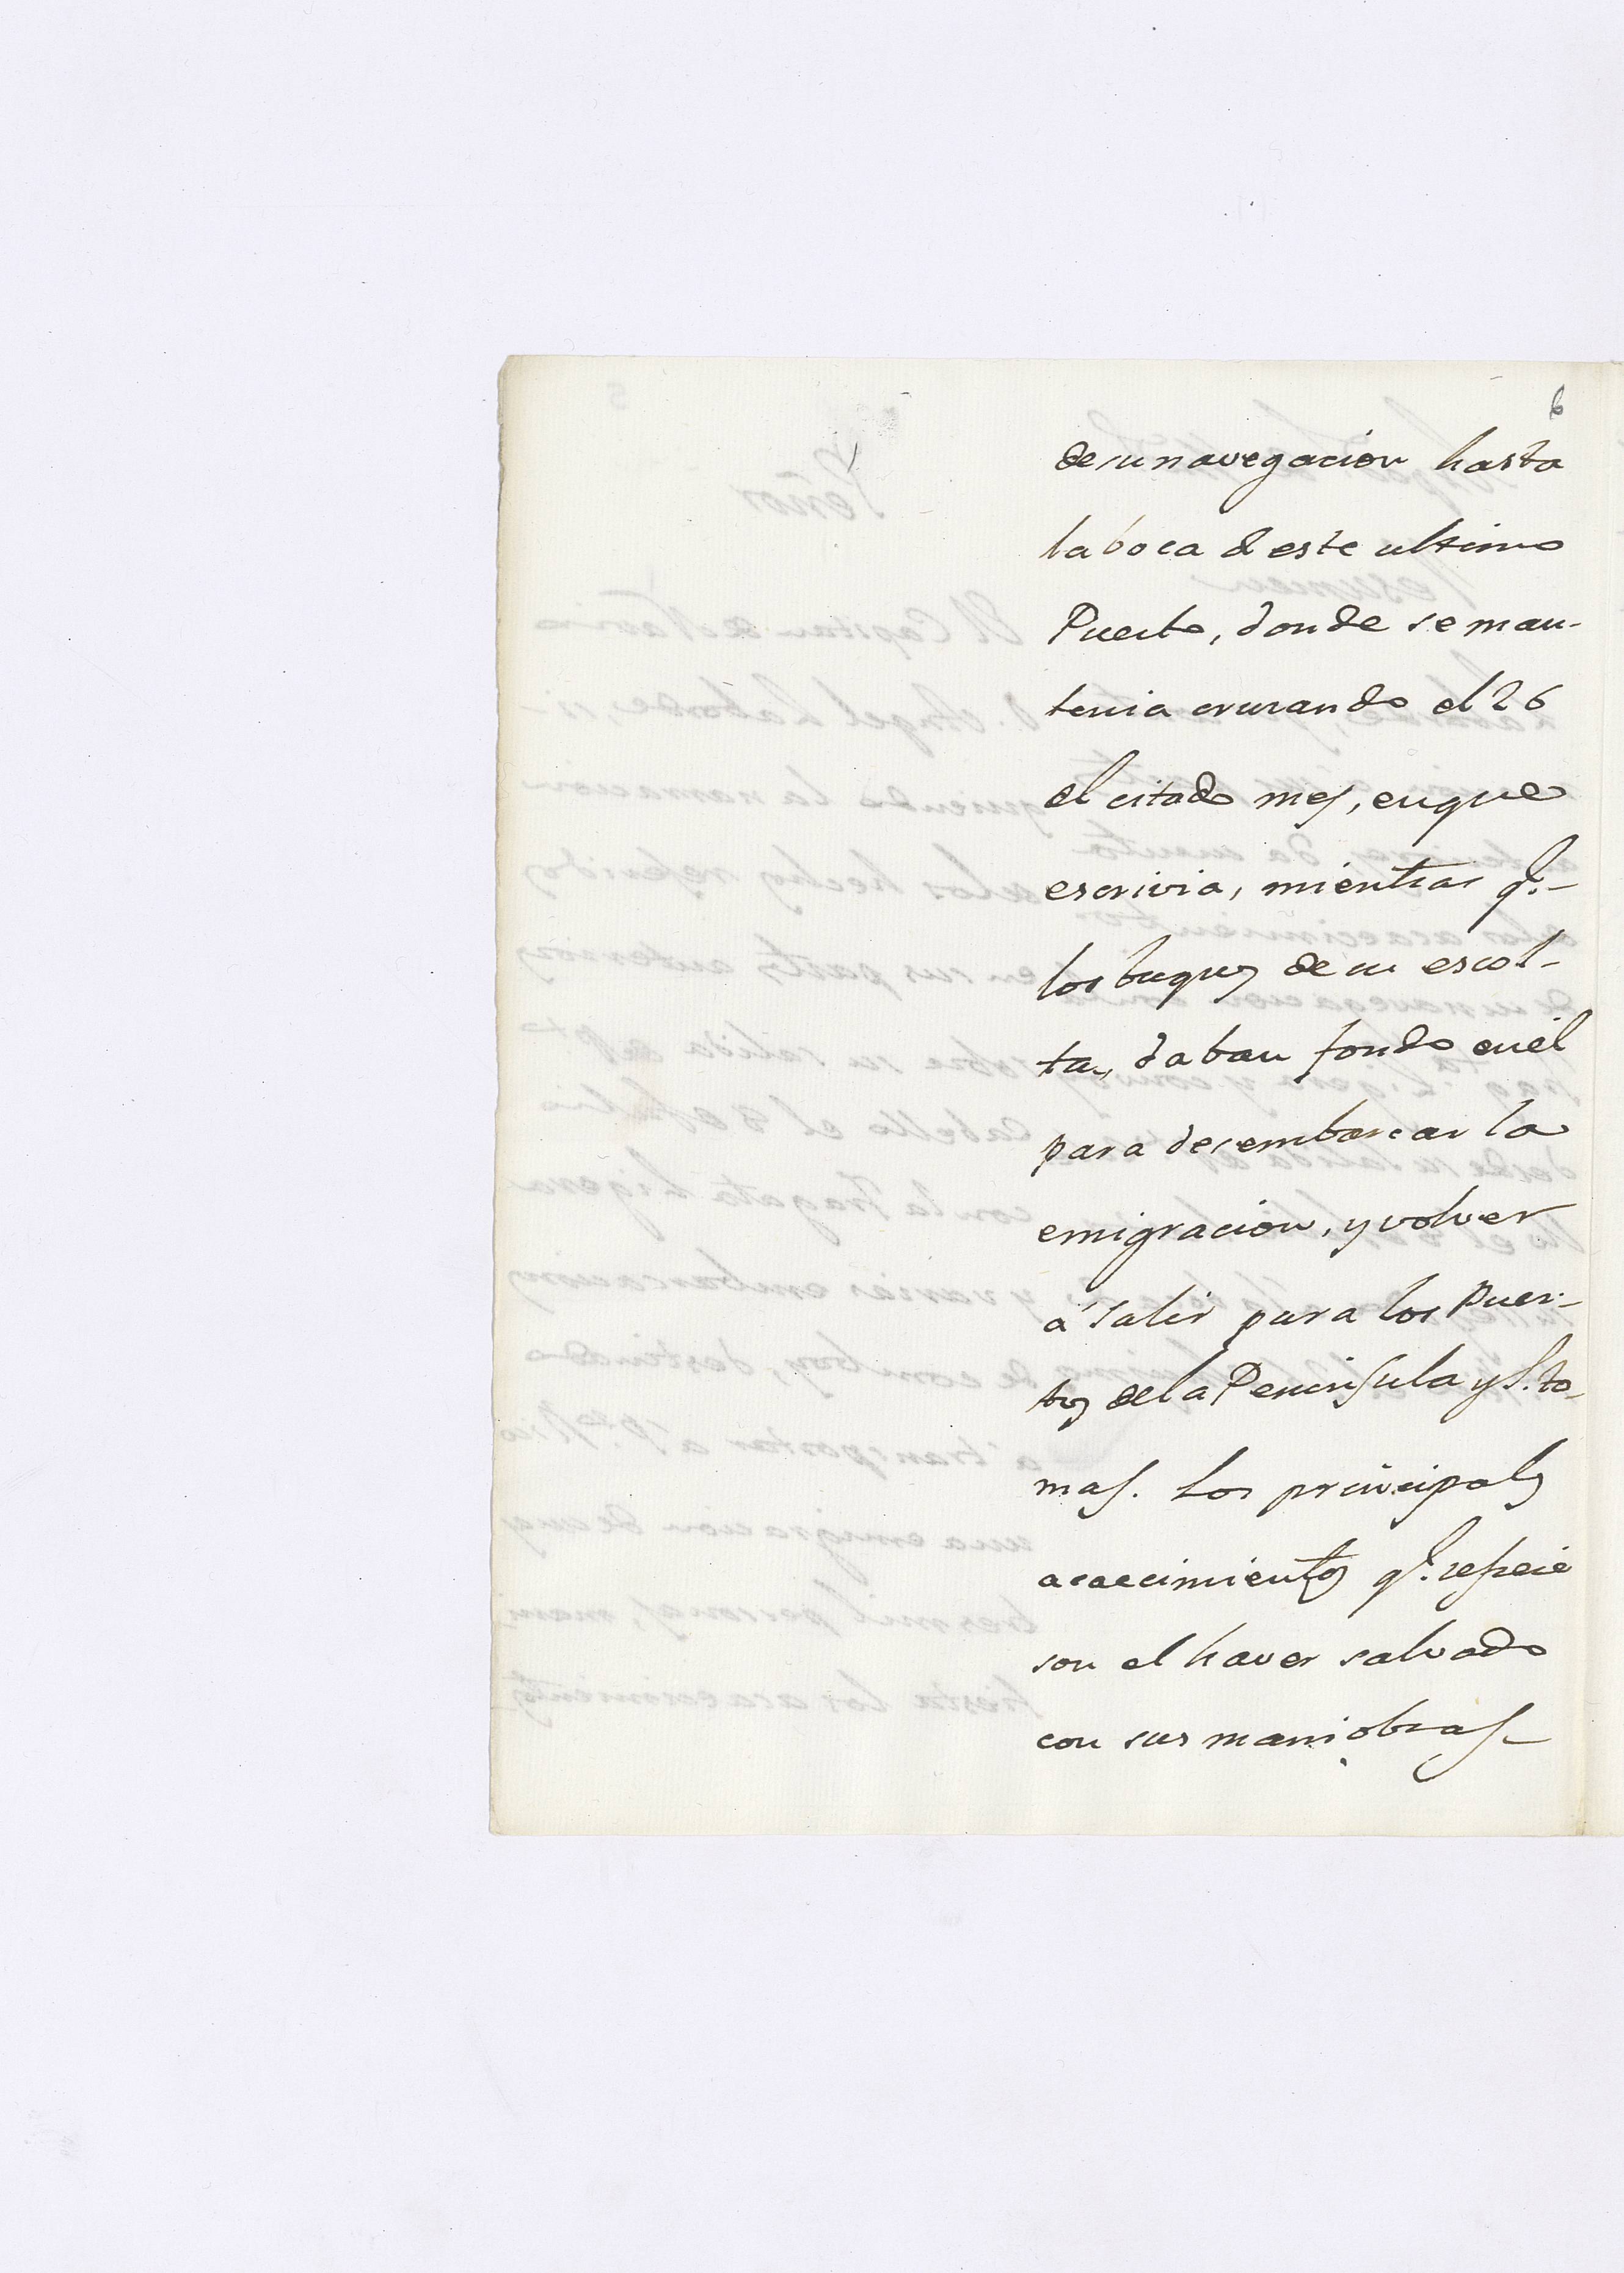 6
de su navegacion hasta
la boca de este ultimo
Puerto, donde se man-
tenia cruzando el 26
el citado mes, en que
escrivia, mientras q.e
los buques de su escol-
ta, daban fondo en él
para desembarcar la
emigracion, y volver
á salir para los Puer-
tos de la Peninsula y S. to-
mas. Los principales
acaecimientos q.e refiere
son el haver salvado
con sus maniobras